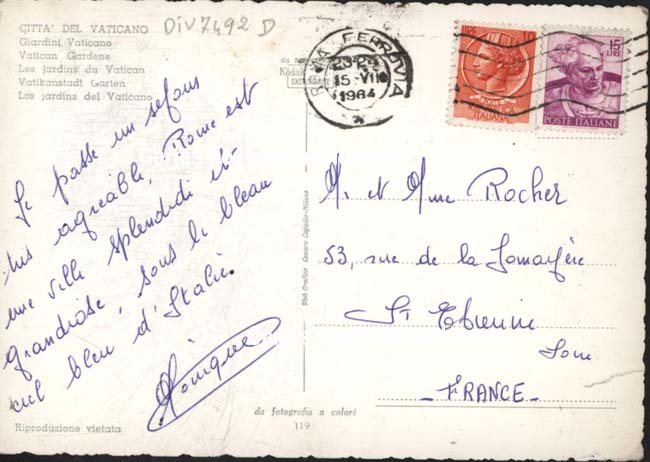 CITTA' DEL VATICANO
Giardini Vaticano
Vatican Gardens
Les jardins du Vatican
Vatikanstadt Garten
Los jardins del Vaticano
DIV7492 D
ROMA FERROVIA
15-VII
1964
POSTE ITALIANE
15
LIRE
POSTE ITALIANE
Je passe un séjour
très agréable, Rome est
une ville splendide et
grandiose, sous le bleau
ciel bleu d'Italie.
Monique
Mr et Mme Rocher
53, rue de la
St Etienne
Loire
- FRANCE -
da fotografia a colori
119
Riproduzione vietata